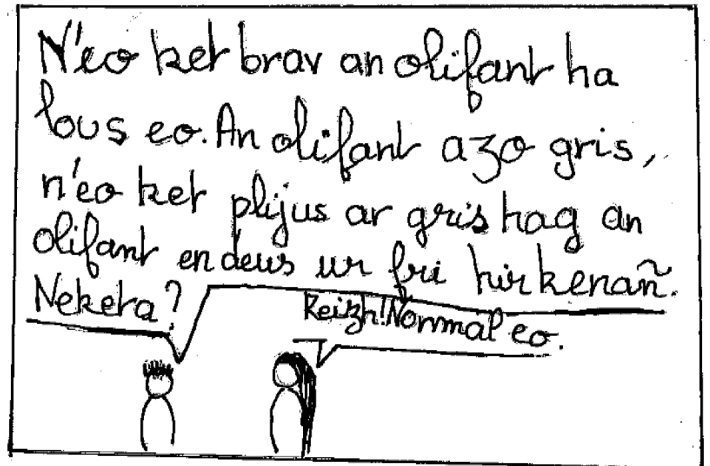 N'eo ket brav an olifant ha
lous eo. An olifant a zo gris,
n'eo ket plijus ar gris hag an
olifant en deus ur fri hir kenañ.
Neketa?
Keizh! Normal eo.